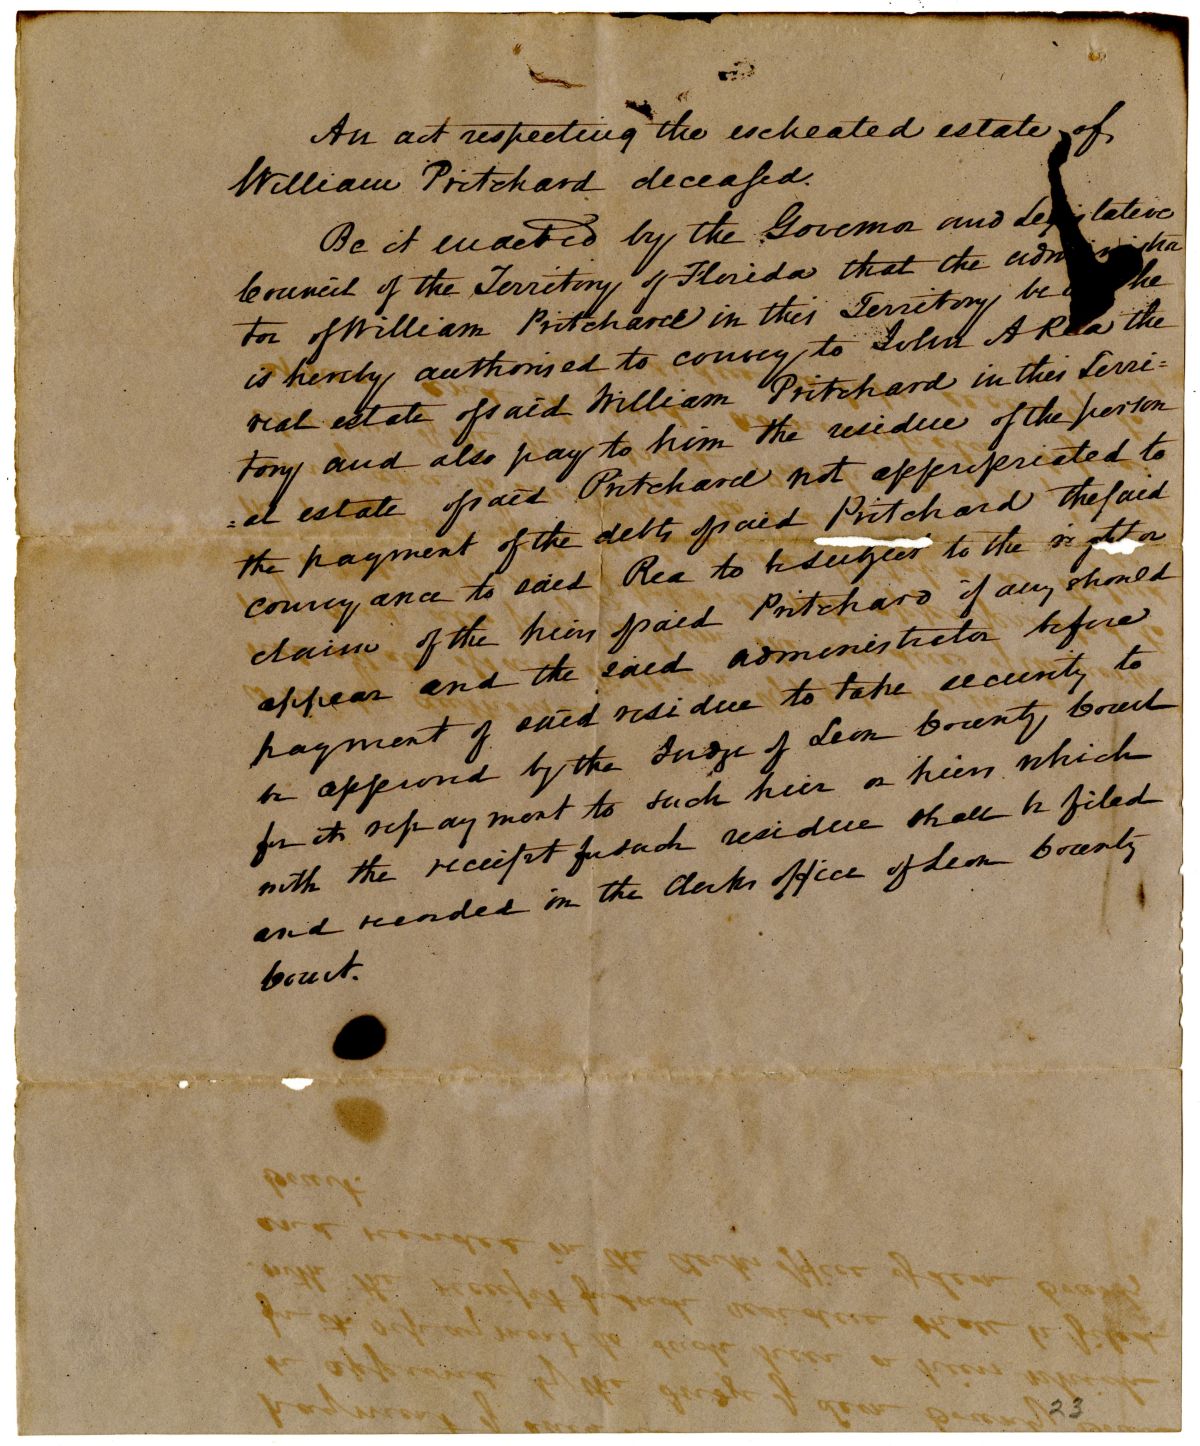 An act respecting the escheated estate of
William Pritchard deceased.
Be it enacted by the Governor and Legislative
Council of the Territory of Florida that the administra
tor of William Pritchard in this Territory be and he
is hereby authorised to convey to John A Rea the
real estate of said William Pritchard in this Terri=
tory and also pay to him the residue of the person
=al estate of said Pritchard not appropriated to
the payment of the debts of said Pritchard the said
conveyance to said Rea to be subject to the right or
claim of the heirs of said Pritchard if any should
appear and the said administrator before
payment of said residue to take security to
be approved by the Judge of Leon County Court
for its repayment to such heir or heirs which
with the receipt for such residue shall be filed
and recorded in the Clerks office of Leon County
Court.
23